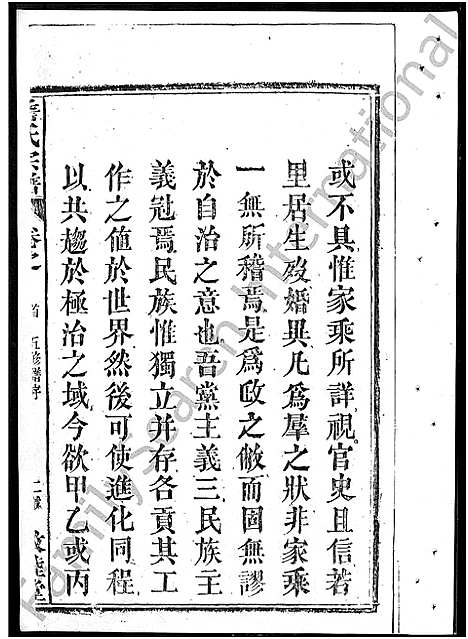 或不具惟家乘所詳視官史且信若
里居生歿婚異凡爲羣之狀非家乘
一無所稽焉是爲政之敝而固無謬
於自治之意也吾黨主義三民族王
義冠焉民族惟獨立并存各貢其工
作之値於世界然後可使進化同程
以共趨於極治之域今欲甲乙或丙
氏宗譜
卷之
首 五修譜序
二
堂
Family Search International